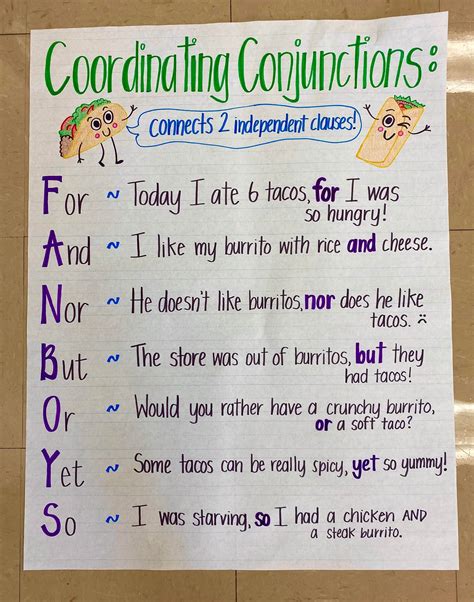 Coordinating Conjunctions:
Connects 2 independent clauses!
For ~ Today I ate 6 tacos, for I was
so hungry!
And ~ I like my burrito with rice and cheese.
Nor ~ He doesn't like burritos, nor does he like
tacos. ☹
But ~ The store was out of burritos, but they
had tacos!
Or ~ Would you rather have a crunchy burrito,
or a soft taco?
Yet ~ Some tacos can be really spicy, yet so yummy!
So ~ I was starving, so I had a chicken AND
a steak burrito.